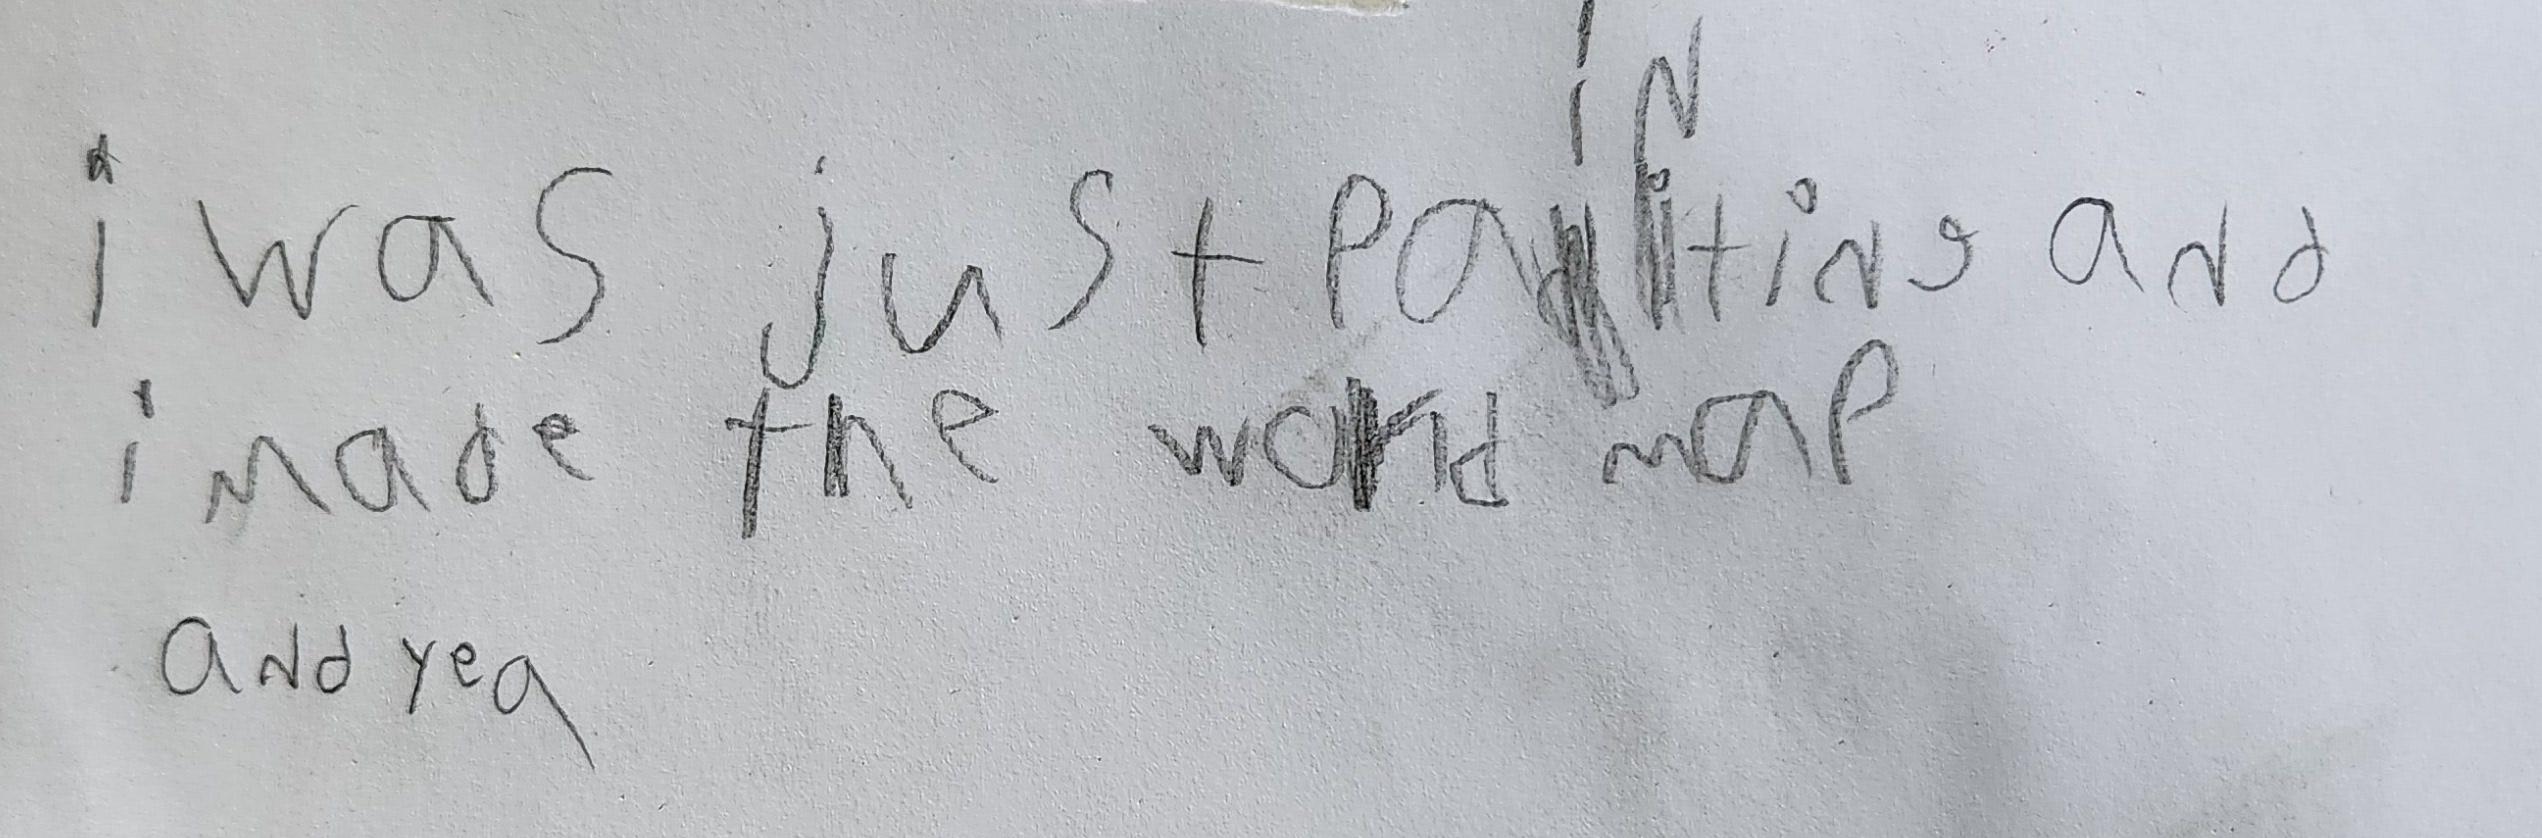 i was just painting and
i made the world map
and yea